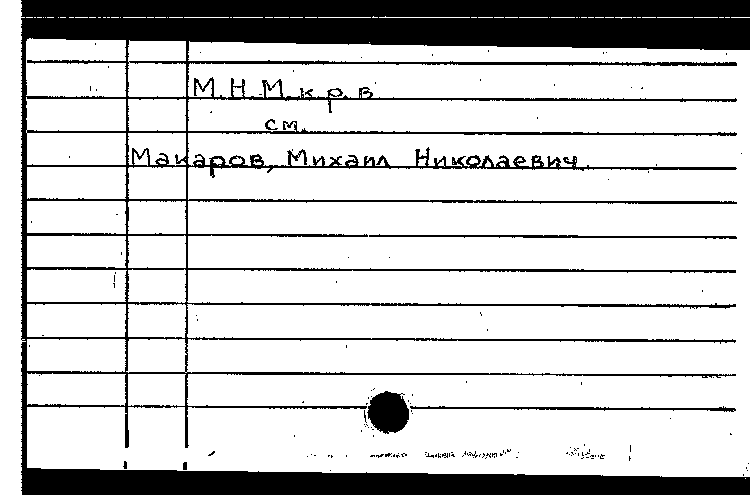 М.Н.М.к.р.в
см.
Макаров, Михаил Николаевич.